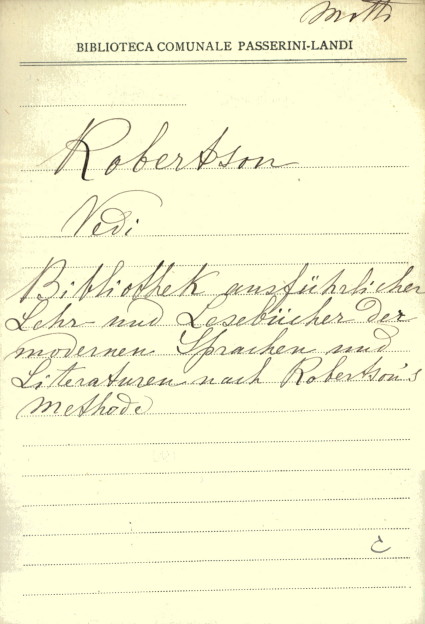 BIBLIOTECA COMUNALE PASSERINI-LANDI
Robertson
Vedi
Bibliothek ausführlicher
Lehr und Lesebücher der
modernen Sprachen und
Literaturen nach Robertson's
Methode